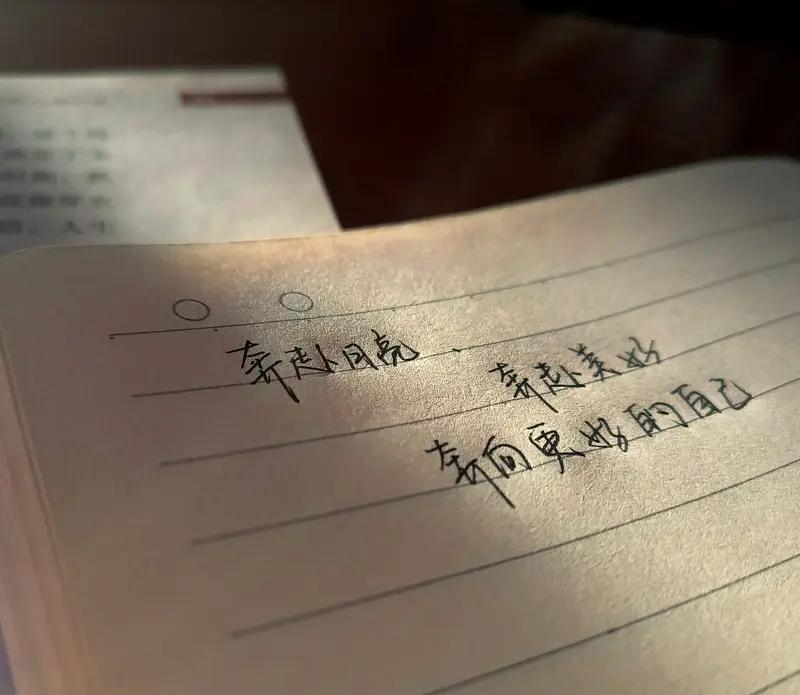 奔赴月亮
奔赴美好
奔向更好的自己